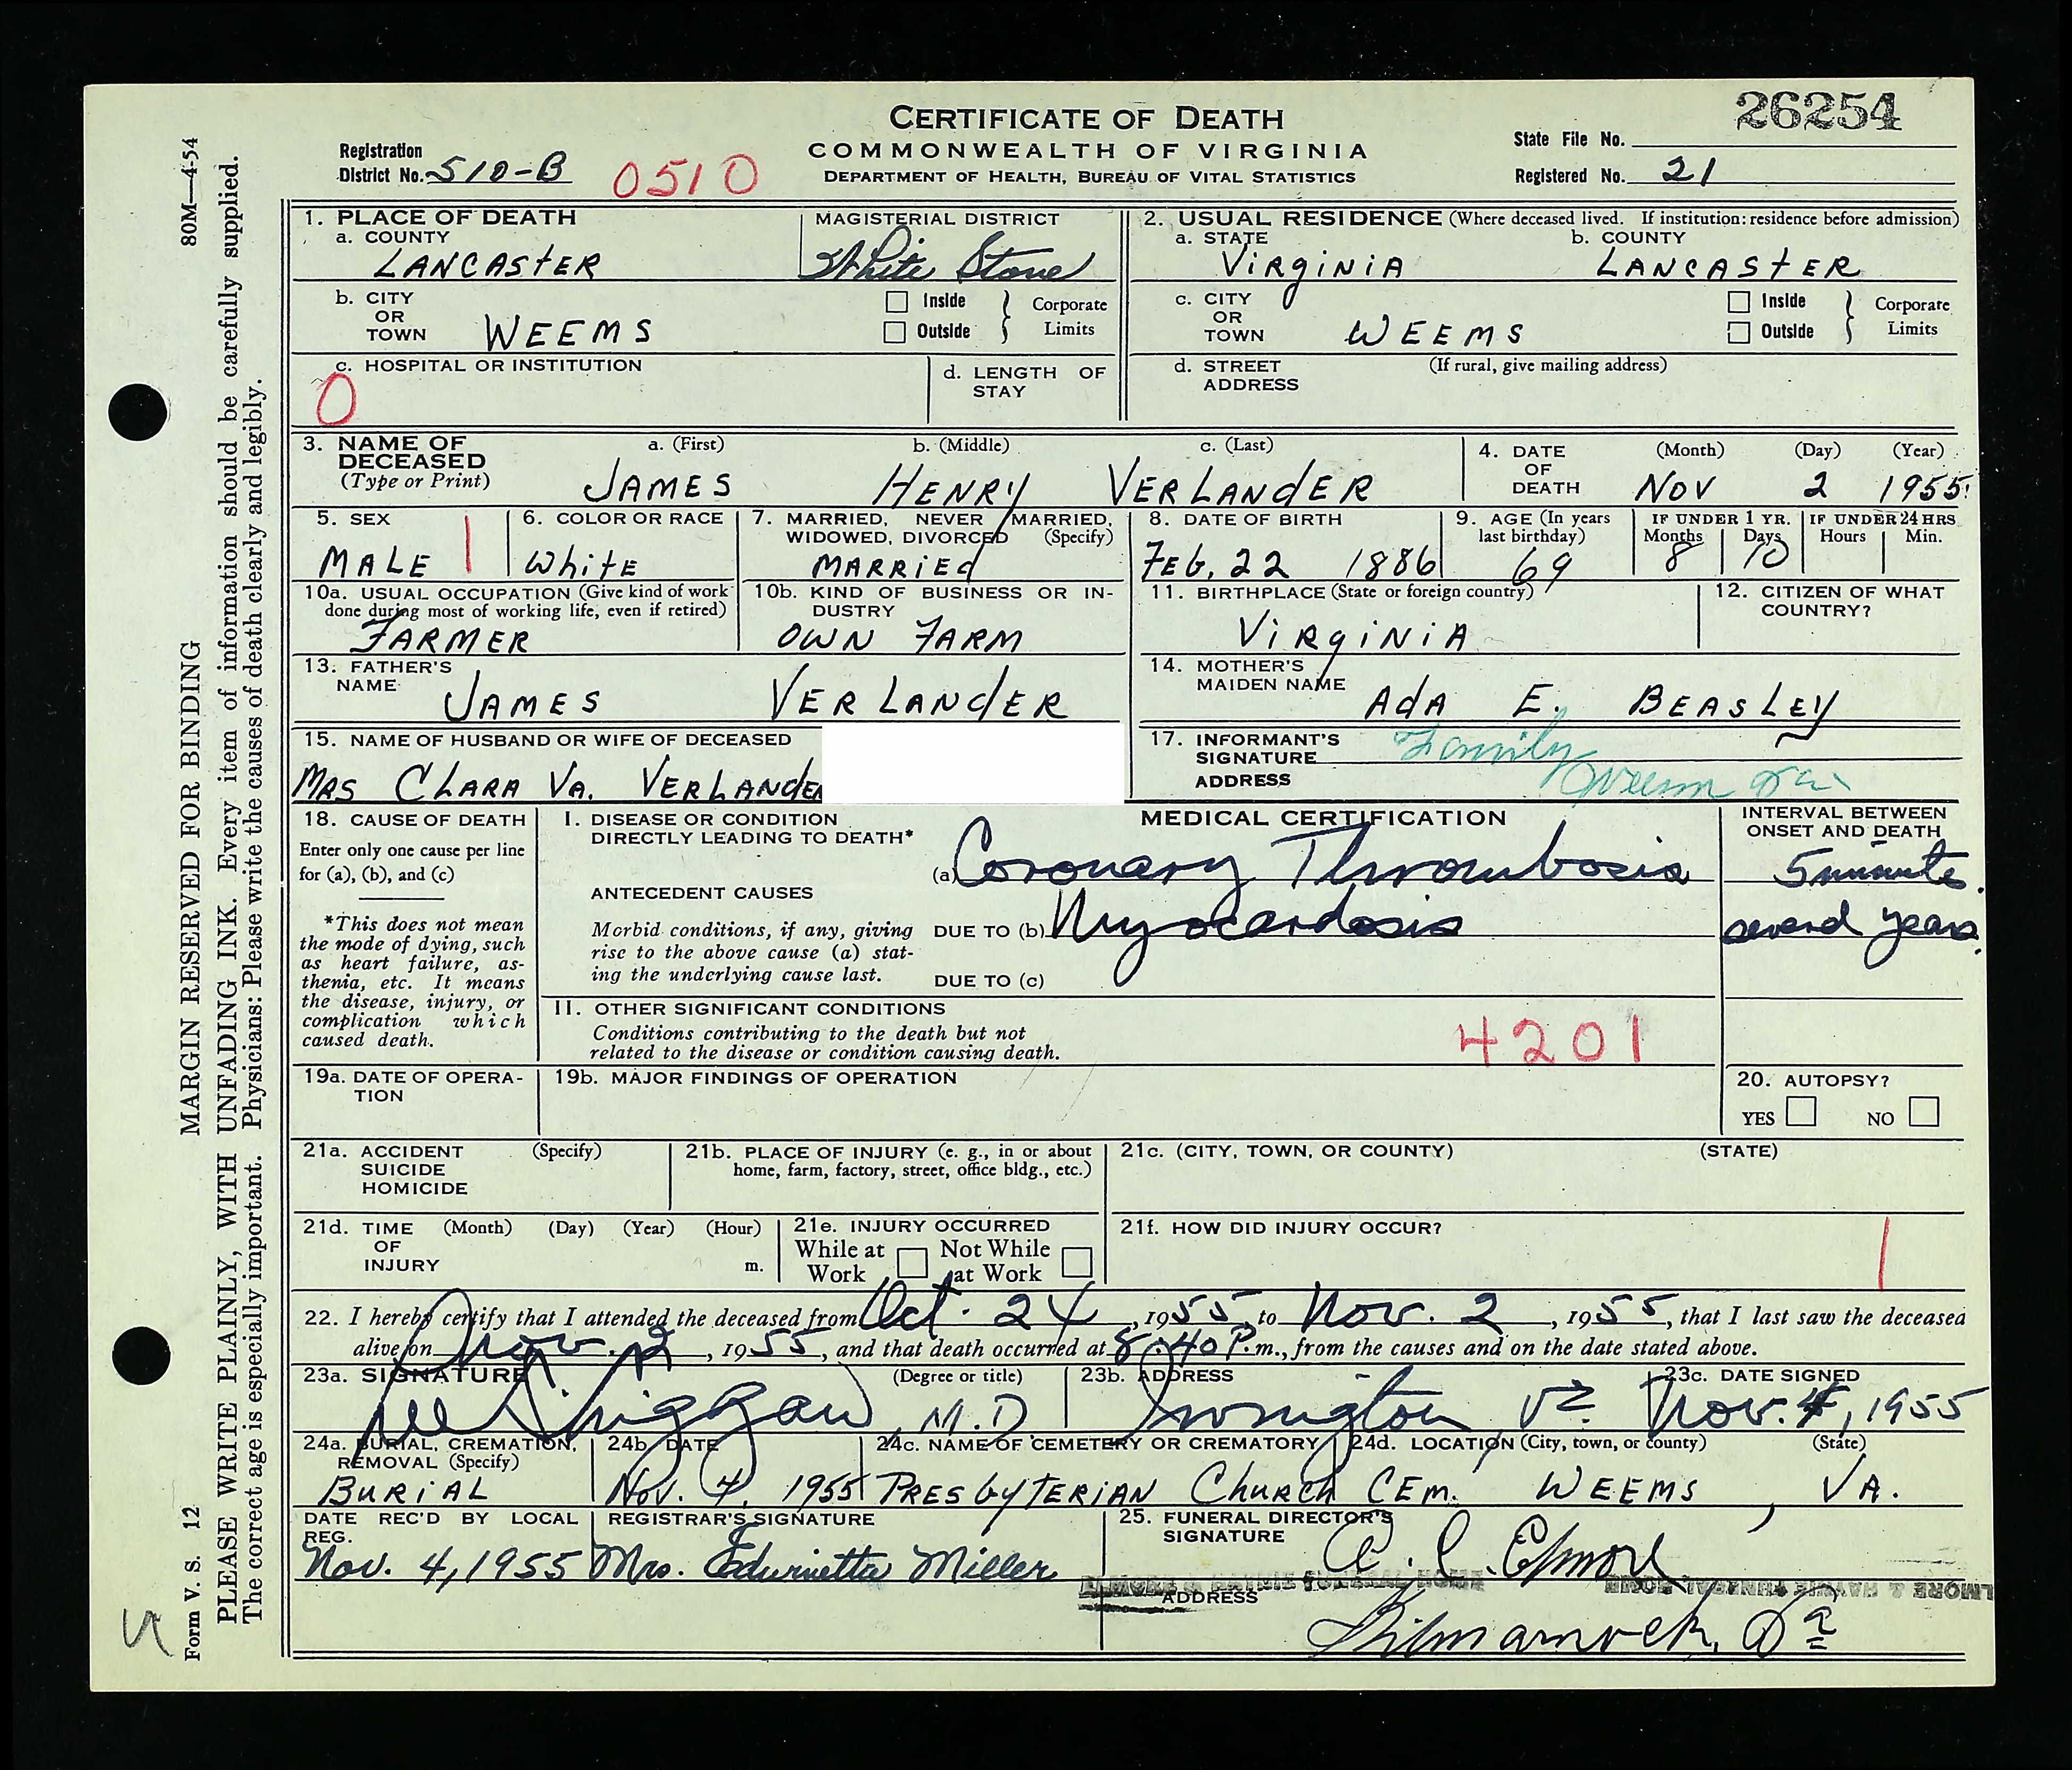 26254
CERTIFICATE OF DEATH
COMMONWEALTH OF VIRGINIA
DEPARTMENT OF HEALTH, BUREAU OF VITAL STATISTICS
Registration
District No. 510-B 0510
State File No.
Registered No. 21
1. PLACE OF DEATH
a. COUNTY
LANCASTER
MAGISTERIAL DISTRICT
White Stone
2. USUAL RESIDENCE (Where deceased lived. If institution: residence before admission)
a. STATE b. COUNTY
VIRGINIA LANCASTER
b. CITY
OR
TOWN WEEMS
Inside
Outside
Corporate
Limits
c. CITY
OR
TOWN WEEMS
Inside
Outside
Corporate
Limits
c. HOSPITAL OR INSTITUTION
0
d. LENGTH OF
STAY
d. STREET
ADDRESS
(If rural, give mailing address)
3. NAME OF
DECEASED
(Type or Print)
a. (First) b. (Middle) c. (Last)
JAMES HENRY VERLANDER
4. DATE
OF
DEATH
(Month) (Day) (Year)
NOV 2 1955
5. SEX
MALE 1
6. COLOR OR RACE
White
7. MARRIED, NEVER MARRIED,
WIDOWED, DIVORCED (Specify)
MARRIEd
8. DATE OF BIRTH
FEb. 22 1886
9. AGE (In years
last birthday)
69
IF UNDER 1 YR.
Months Days
8 10
IF UNDER 24 HRS
Hours Min.
10a. USUAL OCCUPATION (Give kind of work
done during most of working life, even if retired)
FARMER
10b. KIND OF BUSINESS OR IN-
DUSTRY
OWN FARM
11. BIRTHPLACE (State or foreign country)
VIRGINIA
12. CITIZEN OF WHAT
COUNTRY?
13. FATHER'S
NAME
JAMES VERLANDER
14. MOTHER'S
MAIDEN NAME
AdA E. BEASLEY
15. NAME OF HUSBAND OR WIFE OF DECEASED
MRS CLARA VA. VERLANDER
17. INFORMANT'S
SIGNATURE Family
ADDRESS Weems Va
18. CAUSE OF DEATH
Enter only one cause per line
for (a), (b), and (c)
*This does not mean
the mode of dying, such
as heart failure, as-
thenia, etc. It means
the disease, injury, or
complication which
caused death.
MEDICAL CERTIFICATION
I. DISEASE OR CONDITION
DIRECTLY LEADING TO DEATH*
(a) Coronary Thrombosis
ANTECEDENT CAUSES
Morbid conditions, if any, giving
rise to the above cause (a) stat-
ing the underlying cause last.
DUE TO (b) Myocardosis
DUE TO (c)
INTERVAL BETWEEN
ONSET AND DEATH
5 minutes.
several years.
II. OTHER SIGNIFICANT CONDITIONS
Conditions contributing to the death but not
related to the disease or condition causing death.
4201
19a. DATE OF OPERA-
TION
19b. MAJOR FINDINGS OF OPERATION
20. AUTOPSY?
YES NO
21a. ACCIDENT
SUICIDE
HOMICIDE
(Specify)
21b. PLACE OF INJURY (e. g., in or about
home, farm, factory, street, office bldg., etc.)
21c. (CITY, TOWN, OR COUNTY) (STATE)
21d. TIME (Month) (Day) (Year) (Hour)
OF
INJURY m.
21e. INJURY OCCURRED
While at
Work
Not While
at Work
21f. HOW DID INJURY OCCUR?
1
22. I hereby certify that I attended the deceased from Oct. 24, 1955, to Nov. 2, 1955, that I last saw the deceased
alive on Nov. 2, 1955, and that death occurred at 8:40 P. m., from the causes and on the date stated above.
23a. SIGNATURE (Degree or title)
M.D
23b. ADDRESS
Irvington Va
23c. DATE SIGNED
Nov. 4, 1955
24a. BURIAL, CREMATION,
REMOVAL (Specify)
BURIAL
24b. DATE
Nov. 4, 1955
24c. NAME OF CEMETERY OR CREMATORY
PRESbYTERIAN Church CEM.
24d. LOCATION (City, town, or county) (State)
WEEMS, VA.
DATE REC'D BY LOCAL
REG.
Nov. 4, 1955
REGISTRAR'S SIGNATURE
Mrs. Edwinetta Miller
25. FUNERAL DIRECTOR'S
SIGNATURE
ADDRESS
Kilmarnock, Va
80M—4-54
MARGIN RESERVED FOR BINDING
PLEASE WRITE PLAINLY, WITH UNFADING INK. Every item of information should be carefully supplied.
The correct age is especially important. Physicians: Please write the causes of death clearly and legibly.
Form V. S. 12